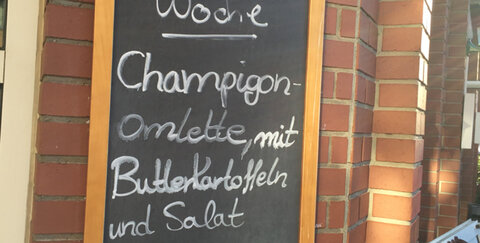 Woche
Champigon-
Omlette, mit
Butterkartoffeln
und Salat